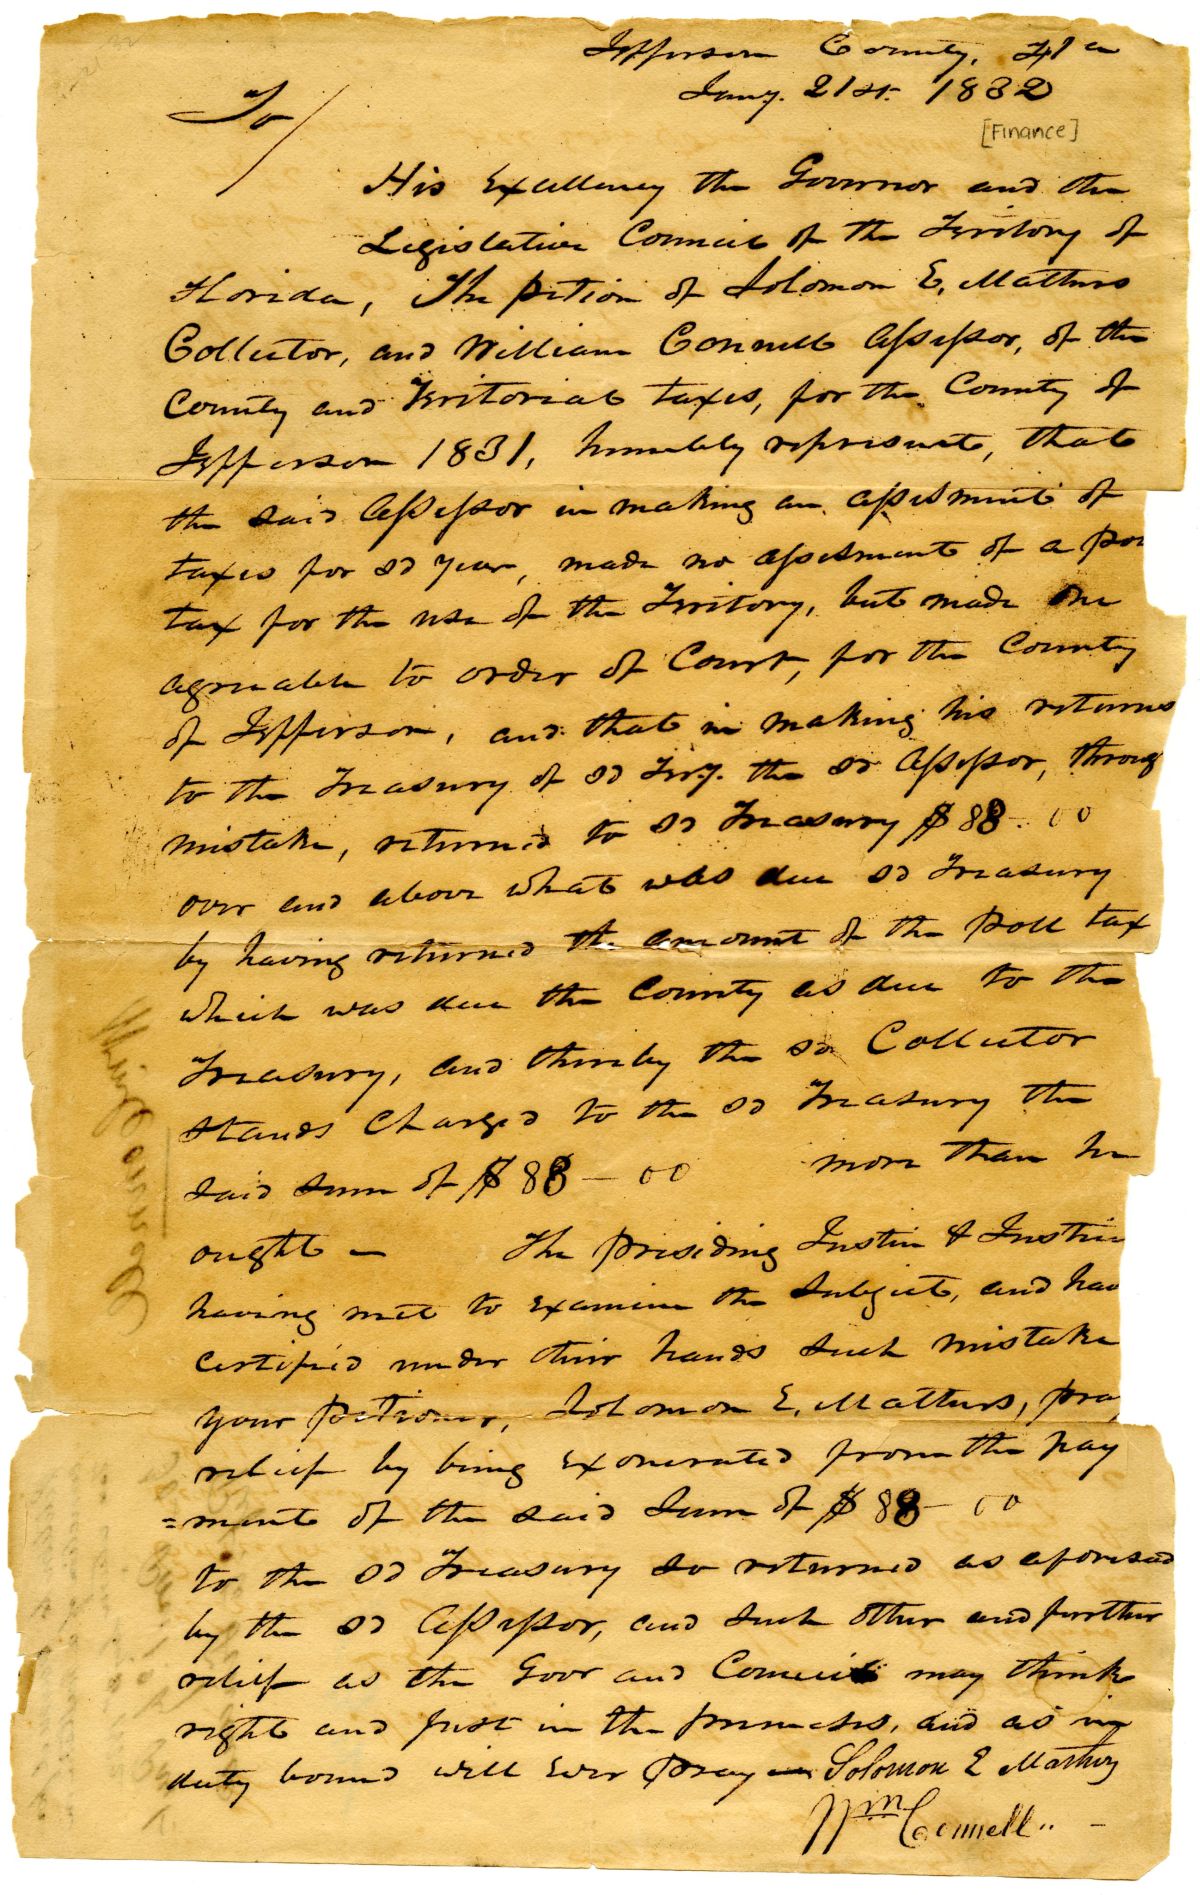 Jefferson County, Fla
Jany. 21st. 1832
[Finance]
To/
His Excellency the Governor and the
Legislative Council of the Teritory of
Florida, The petion of Solomon E. Mathers
Collector, and William Connell Assessor, of the
County and Teritorial taxes, for the County of
Jefferson 1831, humbly represent, that
the said Assessor in making an assesment of
taxes for sd year, made no assesment of a pol
tax for the use of the Teritory, but made one
agreeable to order of Court, for the County
of Jefferson, and that in making his returns
to the Treasury of sd Try. the sd Assessor, throug
mistake, returned to sd Treasury $88.00
over and above what was due sd Treasury
by having returned the amount of the poll tax
which was due the County as due to the
Treasury, and thereby the sd Collector
stands Charged to the sd Treasury the
said sum of $88-00 more than he
ought — The presiding Justice & Justice
having met to examine the Subject, and hav
certified under their hands such mistake
your petioner, Solomon E. Mathers, pra
relief by being exonerated from the pay
=ment of the said Sum of $88-00
to the sd Treasury so returned as aforesaid
by the sd Assessor, and such other and further
relief as the Govr and Council may think
right and just in the premises, and as in
duty bound will ever pray — Solomon E Mathers
Wm Connell..